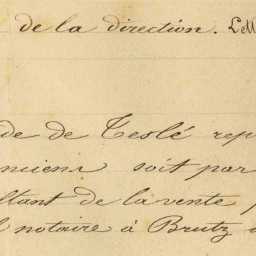 de la direction. Lett
de de Teslé rep
nciens soit par
ltant de la vente p
l notaire à Brutz